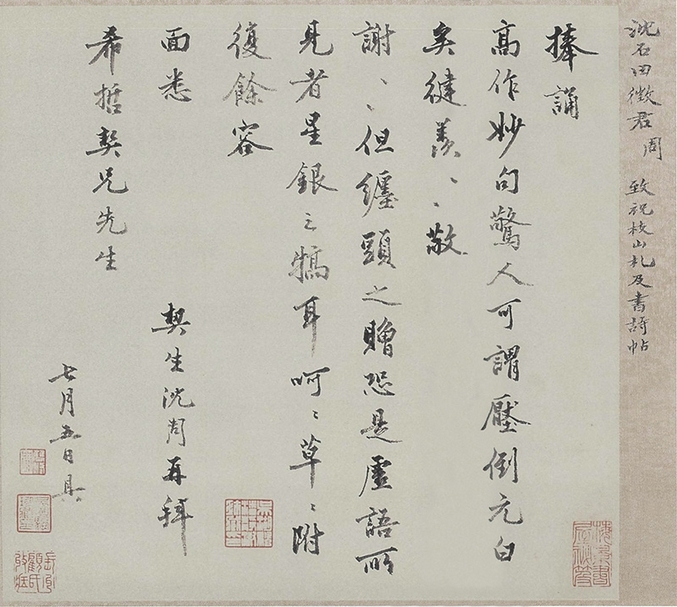 沈石田徵君周 致祝枝山札及書詩帖
捧誦
高作妙句驚人可謂壓倒元白
矣健羨〻〻敬
謝〻〻但纏頭之贈恐是虛語所
見者星銀之犒耳呵〻草〻附
復餘容
面悉
契生沈周再拜
希哲契兄先生
七月五日具